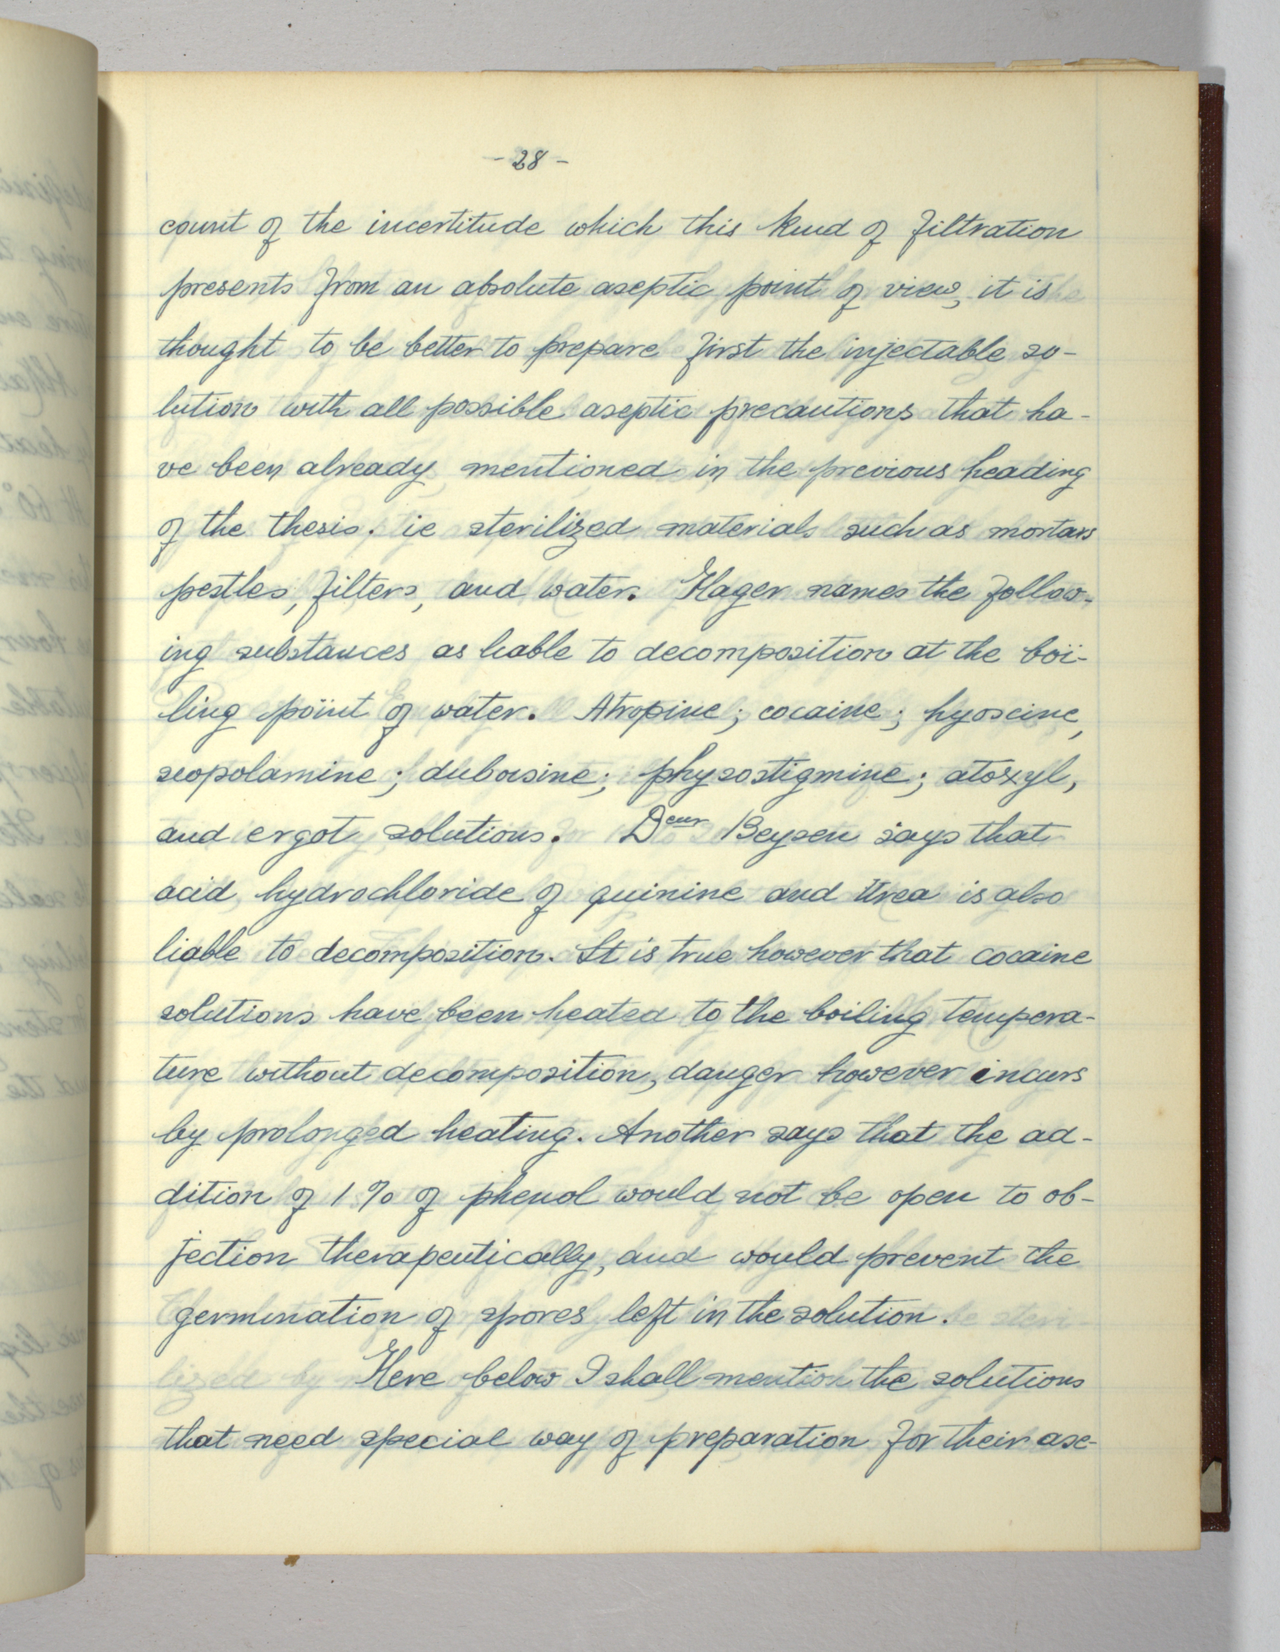 - 28 -
count of the incertitude which this kind of filtration
presents from an absolute aseptic point of view, it is
thought to be better to prepare first the injectable so-
lution with all possible aseptic precautions that ha-
ve been already mentioned in the previous heading
of the thesis. ie sterilized materials such as mortars
pestles, filters, and water. Hager names the follow-
ing substances as liable to decomposition at the boi-
ling point of water. Atropine; cocaine; hyoscine,
scopolamine; duboisine; physostigmine; atoxyl,
and ergot solutions. Deur Beysen says that
acid hydrochloride of quinine and Urea is also
liable to decomposition. It is true however that cocaine
solutions have been heated to the boiling tempera-
ture without decomposition, danger however incurs
by prolonged heating. Another says that the ad-
dition of 1% of phenol would not be open to ob-
jection therapeutically, and would prevent the
germination of spores left in the solution.
Here below I shall mention the solutions
that need special way of preparation for their ase-